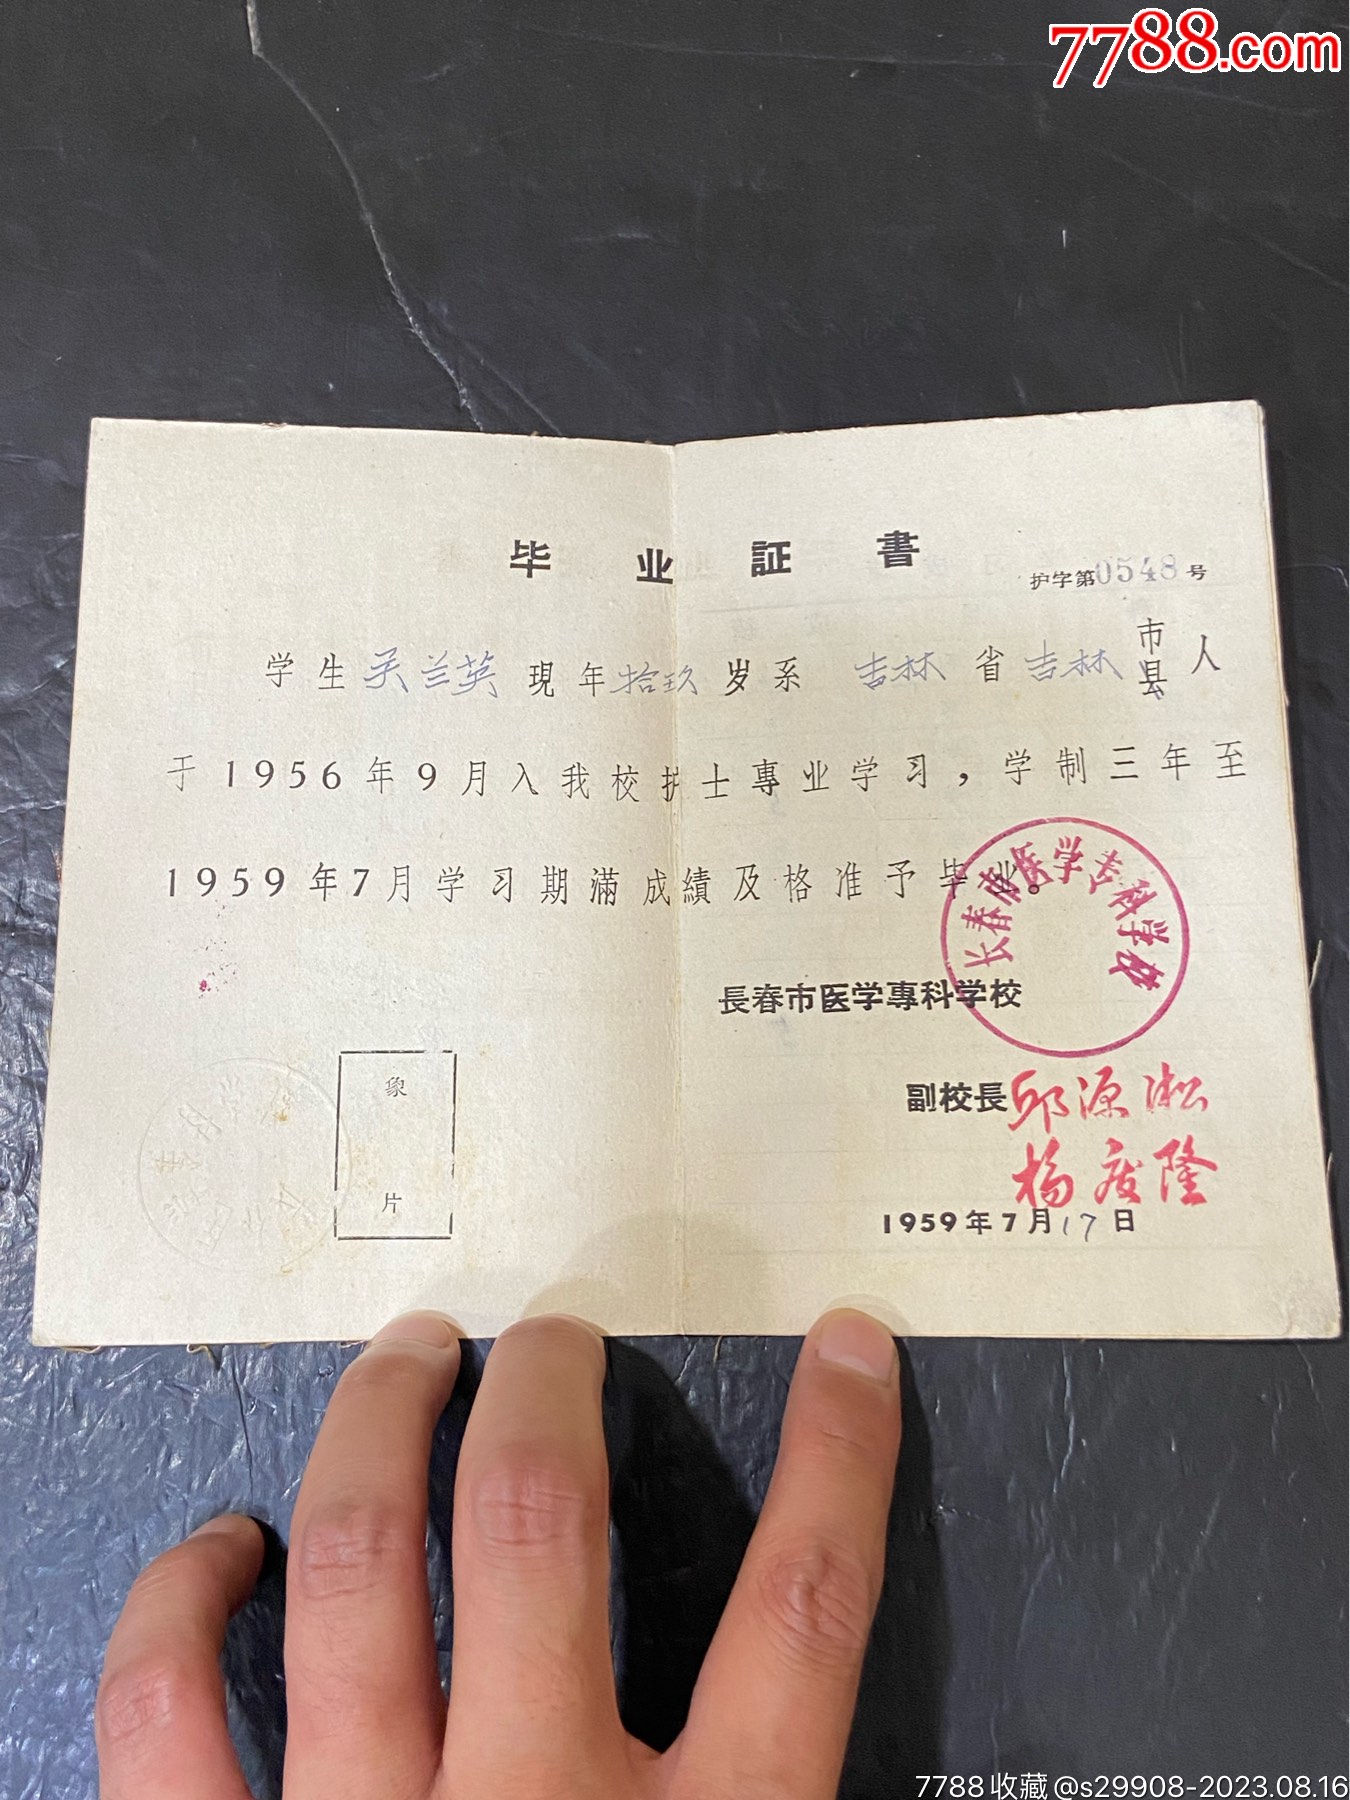 7788.com
毕业証書
护字第0548号
学生关兰英現年拾玖岁系吉林省吉林市县人
于1956年9月入我校护士專业学习，学制三年至
1959年7月学习期滿成績及格准予毕业。
长春市医学专科学校
長春市医学專科学校
象片
副校長邱源淞
杨俊隆
1959年7月17日
7788收藏@s29908-2023.08.16